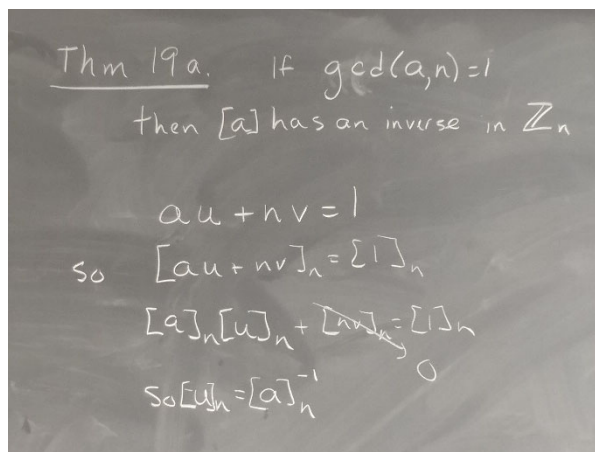 Thm 19a. If gcd(a,n)=1
then [a] has an inverse in ℤn
au + nv = 1
so [au + nv]n = [1]n
[a]n[u]n + [nv]n = [1]n
0
so [u]n = [a]n⁻¹